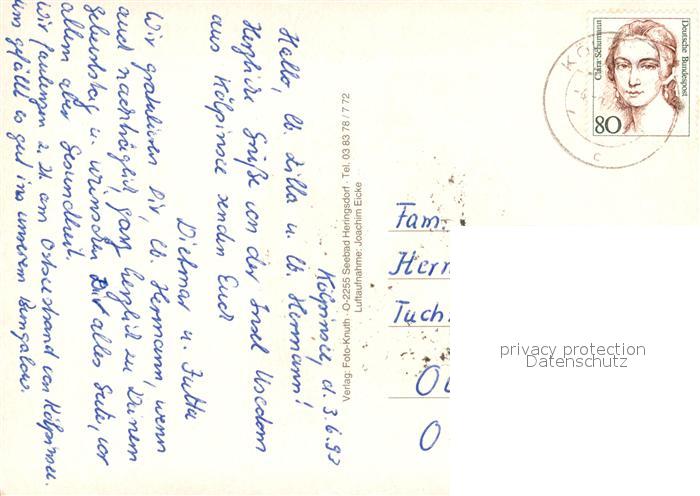 Kölpinsee, d. 3.6.93
Hallo, lb. Zilla u. lb. Hermann!
Herzliche Grüße von der Insel Usedom
aus Kölpinsee senden Euch
Dietmar u. Jutta
Wir gratulieren Dir, lb. Hermann, wenn
auch nachträglich, ganz herzlich zu Deinem
Geburtstag u. wünschen Dir alles Gute, vor
allem aber Gesundheit.
Wir faulenzen z. Zt. am Ostseestrand von Kölpinsee.
uns gefällt es gut in unserem Bungalow.
Verlag: Foto-Knuth · O-2255 Seebad Heringsdorf · Tel. 03 83 78 / 7 72
Luftaufnahme: Joachim Eicke
Clara Schumann
Deutsche Bundespost
80
c
Fam.
Herm
Tuch
O
privacy protection
Datenschutz